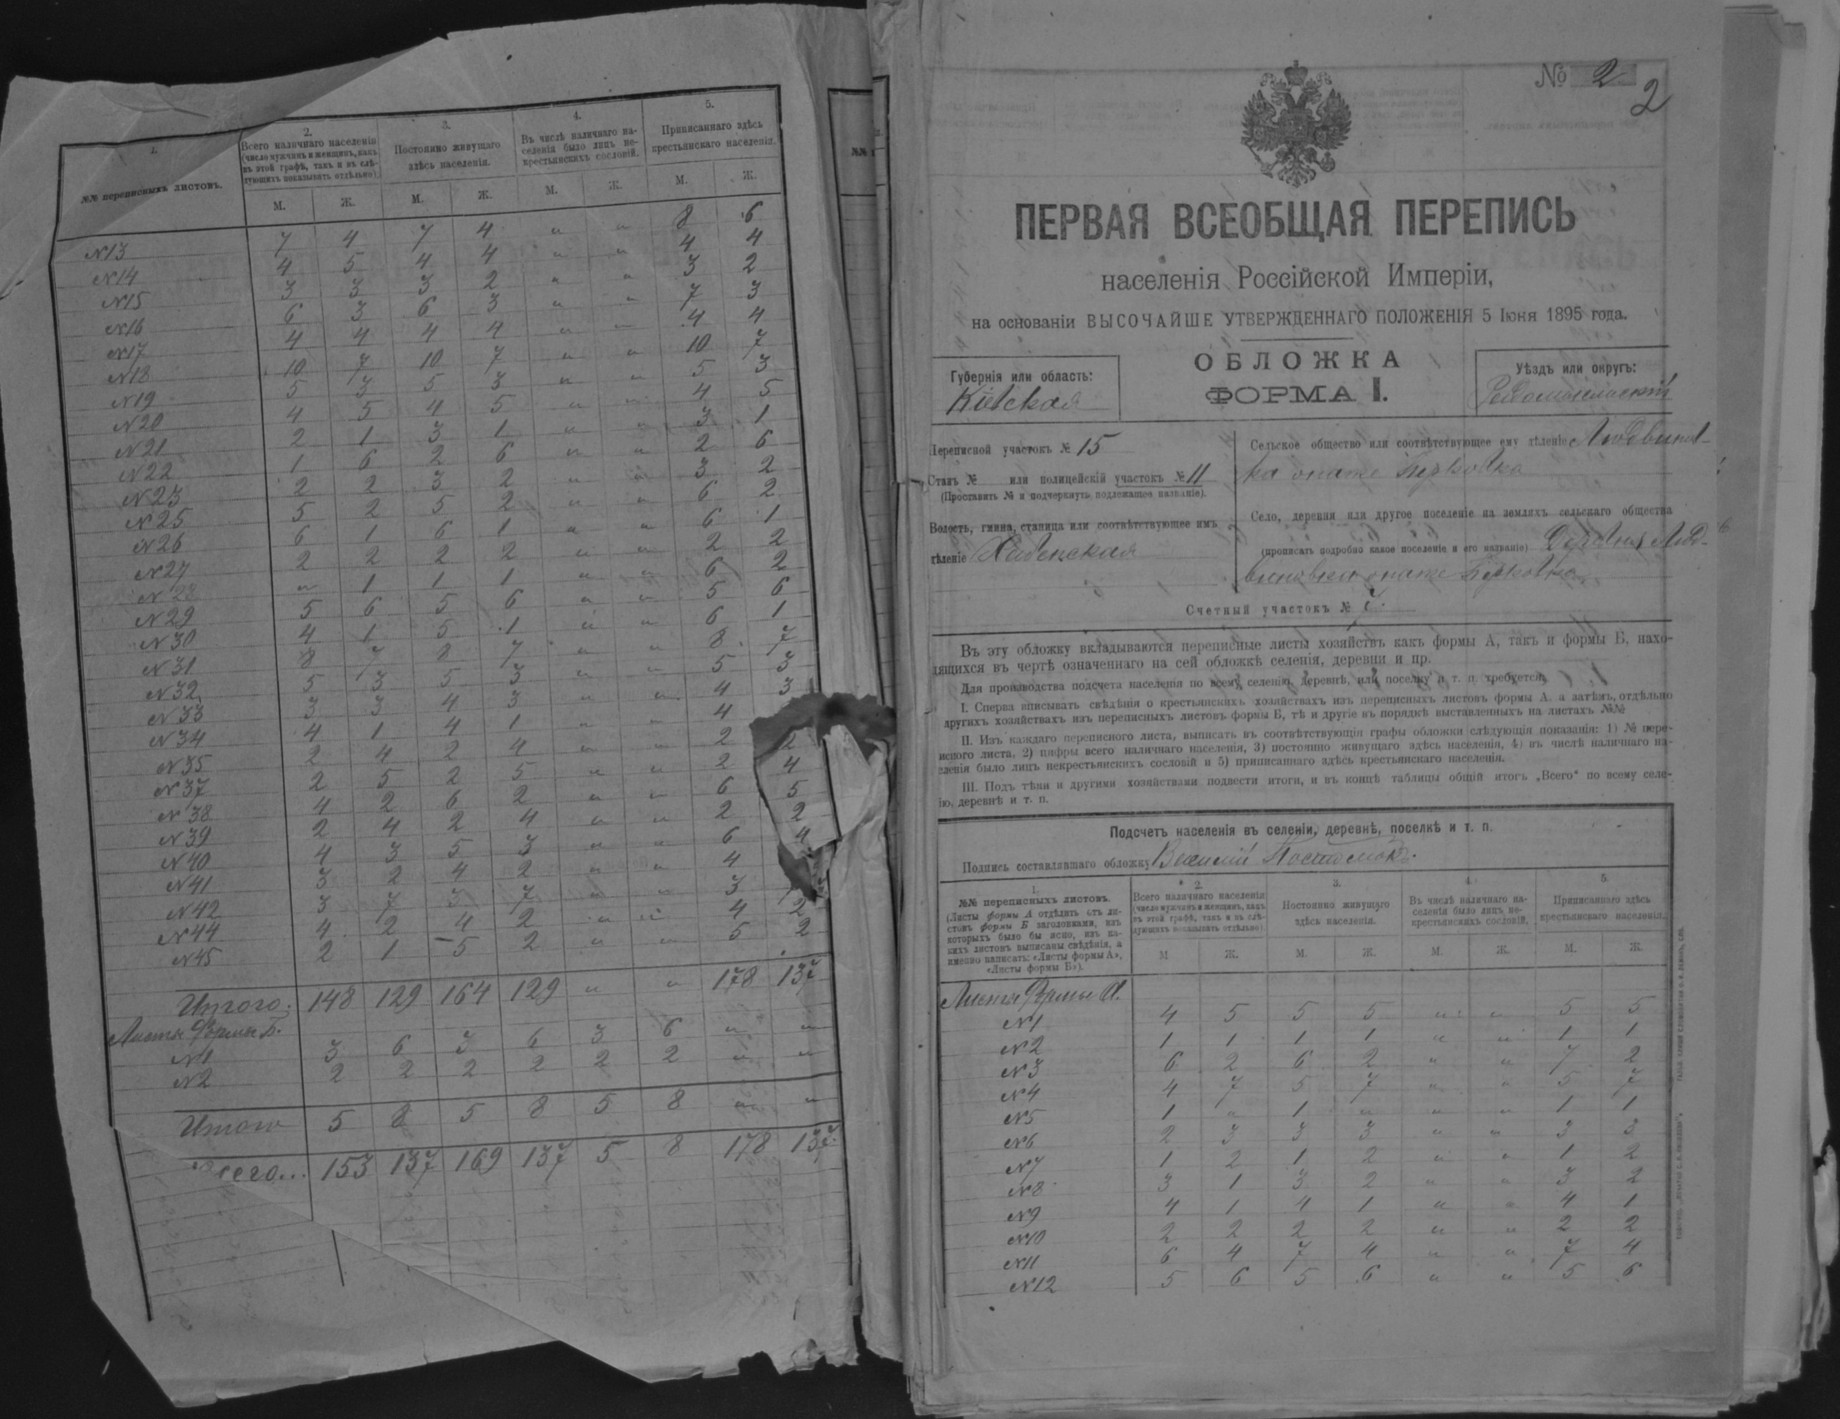 1.
№№ переписныхъ листовъ.
2.
Всего наличнаго населенія
(число мужчинъ и женщинъ, какъ
въ этой графѣ, такъ и въ слѣ-
дующихъ показывать отдѣльно)
3.
Постоянно живущаго
здѣсь населенія.
4.
Въ числѣ наличнаго на-
селенія было лицъ не-
крестьянскихъ сословій.
5.
Приписаннаго здѣсь
крестьянскаго населенія.
М. Ж. М. Ж. М. Ж. М. Ж.
№13 7 4 7 4 " " 8 6
№14 4 5 4 4 " " 4 4
№15 3 3 3 2 " " 3 2
№16 6 3 6 3 " " 7 3
№17 4 4 4 4 " " 4 4
№18 10 7 10 7 " " 10 7
№19 5 3 5 3 " " 5 3
№20 4 5 4 5 " " 4 5
№21 2 1 3 1 " " 3 1
№22 1 6 2 6 " " 2 6
№23 2 2 3 2 " " 3 2
№25 5 2 5 2 " " 6 2
№26 6 1 6 1 " " 6 1
№27 2 2 2 2 " " 2 2
№28 " 1 1 1 " " 6 2
№29 5 6 5 6 " " 5 6
№30 4 1 5 1 " " 6 1
№31 8 7 8 7 " " 8 7
№32 5 3 5 3 " " 5 3
№33 3 3 4 3 " " 4 3
№34 4 1 4 1 " " 4
№35 2 4 2 4 " " 2 2
№37 2 5 2 5 " " 2 4
№38 4 2 6 2 " " 6 5
№39 2 4 2 4 " " 2 2
№40 4 3 5 3 " " 6 4
№41 3 2 4 2 " " 4
№42 3 7 3 7 " " 3
№44 4 2 4 2 " " 4 2
№45 2 1 5 2 " " 5 2
Итого: 148 129 164 129 " " 178 137
Листы Формы Б.
№1 3 6 3 6 3 6 " "
№2 2 2 2 2 2 2 " "
Итого 5 8 5 8 5 8 " "
сего... 153 137 169 137 5 8 178 137.
№ 2
2
ПЕРВАЯ ВСЕОБЩАЯ ПЕРЕПИСЬ
населенія Россійской Имперіи,
на основаніи ВЫСОЧАЙШЕ УТВЕРЖДЕННАГО ПОЛОЖЕНІЯ 5 Іюня 1895 года.
ОБЛОЖКА
ФОРМА I.
Губернія или область:
Кіевская
Уѣздъ или округъ:
Радомысльскій
Переписной участокъ № 15
Станъ № или полицейскій участокъ № 11
(Проставить № и подчеркнуть подлежащее названіе).
Волость, гмина, станица или соотвѣтствующее имъ
дѣленіе Хабенская
Сельское общество или соотвѣтствующее ему дѣленіе Людвинов-
ка онаже Берковка
Село, деревня или другое поселеніе на земляхъ сельскаго общества
(прописать подробно какое поселеніе и его названіе) Деревня Люд-
виновка онаже Берковка
Счетный участокъ №
Въ эту обложку вкладываются переписные листы хозяйствъ какъ формы А, такъ и формы Б, нахо-
дящихся въ чертѣ означеннаго на сей обложкѣ селенія, деревни и пр.
Для производства подсчета населенія по всему селенію, деревнѣ, или поселку и т. п. требуется:
I. Сперва вписывать свѣдѣнія о крестьянскихъ хозяйствахъ изъ переписныхъ листовъ формы А. а затѣмъ, отдѣльно
другихъ хозяйствахъ изъ переписныхъ листовъ формы Б, тѣ и другіе въ порядкѣ выставленныхъ на листахъ №№
II. Изъ каждаго переписного листа, выписать въ соотвѣтствующія графы обложки слѣдующія показанія: 1) № пере-
писного листа, 2) цифры всего наличнаго населенія, 3) постоянно живущаго здѣсь населенія, 4) въ числѣ наличнаго на-
селенія было лицъ некрестьянскихъ сословій и 5) приписаннаго здѣсь крестьянскаго населенія.
III. Подъ тѣми и другими хозяйствами подвести итоги, и въ концѣ таблицы общій итогъ „Всего“ по всему селе-
ію, деревнѣ и т. п.
Подсчетъ населенія въ селеніи, деревнѣ, поселкѣ и т. п.
Подпись составлявшаго обложку
1.
№№ переписныхъ листовъ.
(Листы формы А отдѣлить отъ ли-
стовъ формы Б заголовками, изъ
которыхъ было бы ясно, изъ ка-
кихъ листовъ выписаны свѣдѣнія, а
именно написать: «Листы формы А»,
«Листы формы Б»).
2.
Всего наличнаго населенія
(число мужчинъ и женщинъ, какъ
въ этой графѣ, такъ и въ слѣ-
дующихъ показывать отдѣльно)
3.
Постоянно живущаго
здѣсь населенія.
4.
Въ числѣ наличнаго на-
селенія было лицъ не-
крестьянскихъ сословій.
5.
Приписаннаго здѣсь
крестьянскаго населенія.
М. Ж. М. Ж. М. Ж. М. Ж.
Листы Формы А.
№1 4 5 5 5 " " 5 5
№2 1 1 1 1 " " 1 1
№3 6 2 6 2 " " 7 2
№4 4 7 5 7 " " 5 7
№5 1 " 1 " " " 1 1
№6 2 3 3 3 " " 3 3
№7 1 2 1 2 " " 1 2
№8 3 1 3 2 " " 3 2
№9 4 1 4 1 " " 4 1
№10 2 2 2 2 " " 2 2
№11 6 4 7 4 " " 7 4
№12 5 6 5 6 " " 5 6